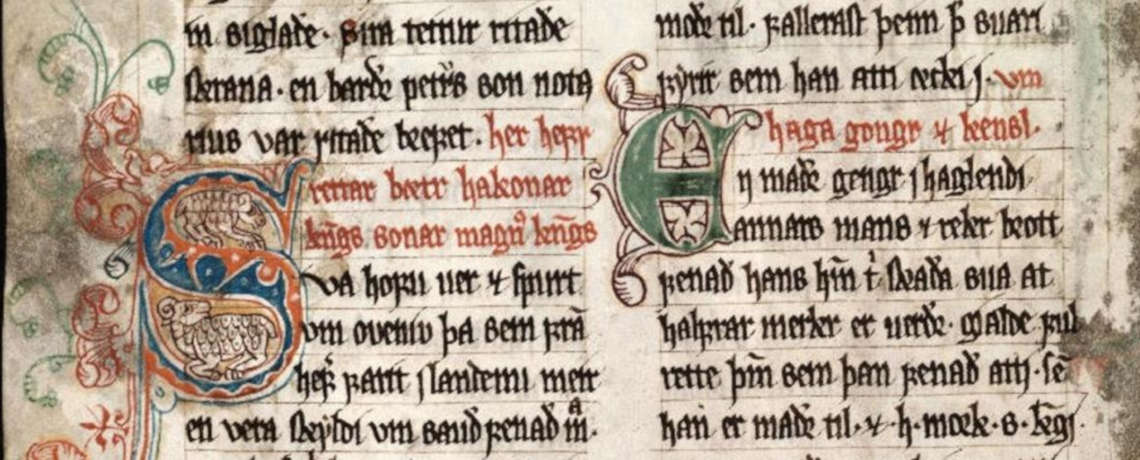 in siglaðe. sira teitur ritaðe
skrana. en barðr petꝛs son nota
rius var ritaðe brefet. her hefr
rettar bœtr hakonar
kngs sonar magn⁹ kngs
Sva hofu ver ⁊ spurt
vm oveniv þa sem fra
hefr farit i landenu meir
en vera skyldi vm sauðfenað m.
moðe til. fallerast þeim þ suari
fyrir sem han atti œcki j. vm
haga gongr ⁊ kensl.
En maðr gengr j haglendi
annars mans ⁊ rekr brott
fenað hans hin t skaða sua at
halfrar merkr er verðr. gialde ful
rette þim sem þan fenað atti. se
han er maðr til. ⁊ h. mœrk. s. kgi.